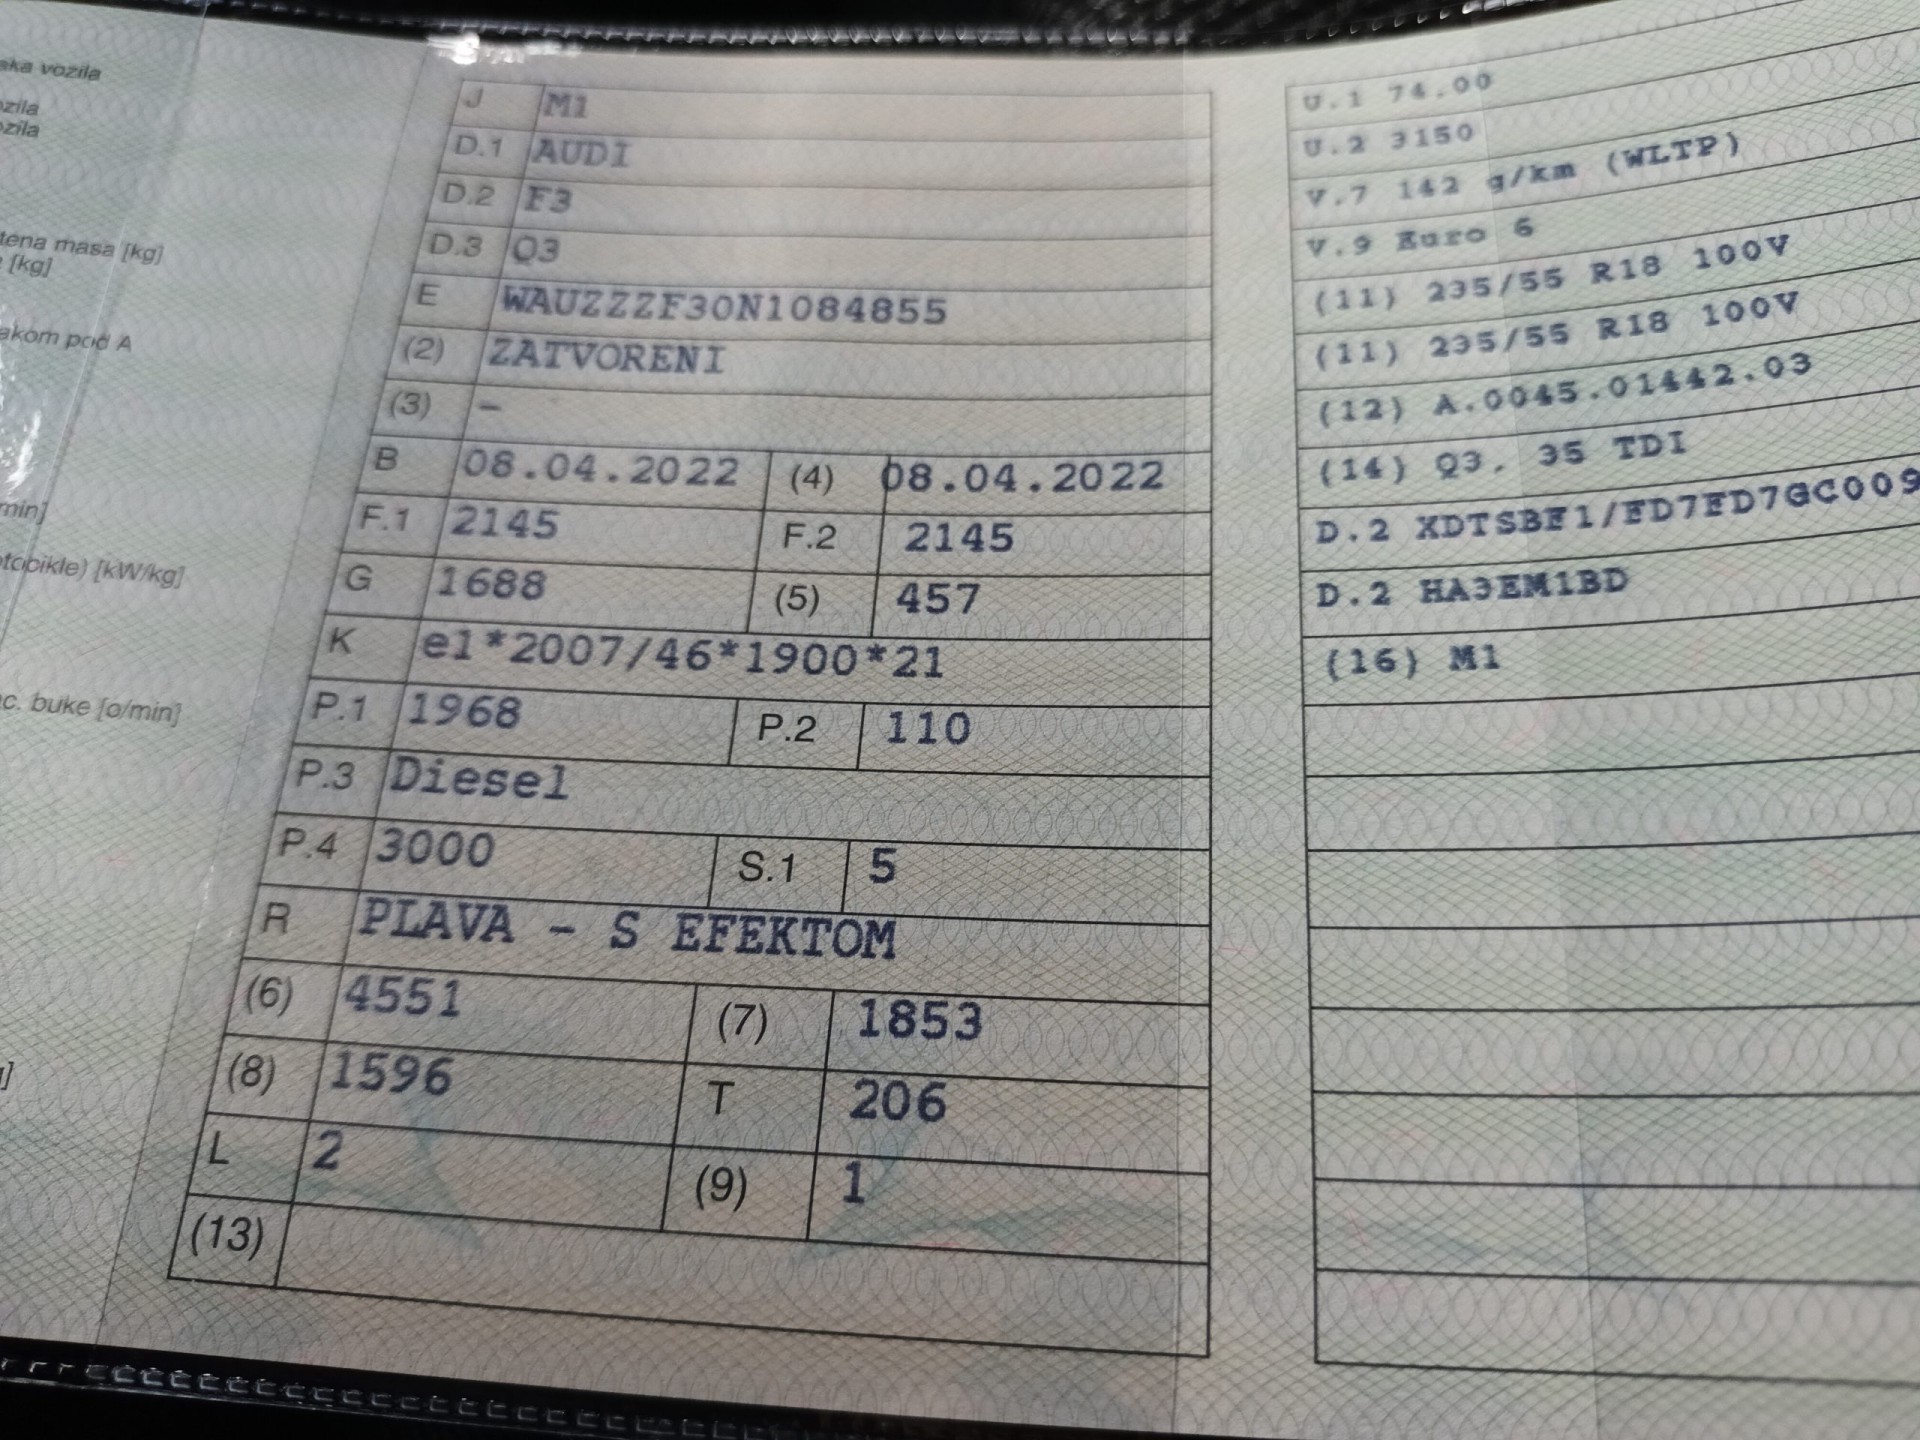 aka vozila
ozila
ozila
tena masa [kg]
[kg]
akom pod A
min]
tocikle) [kW/kg]
c. buke [o/min]
J M1
D.1 AUDI
D.2 F3
D.3 Q3
E WAUZZZF30N1084855
(2) ZATVORENI
(3) –
B 08.04.2022 (4) 08.04.2022
F.1 2145 F.2 2145
G 1688 (5) 457
K e1*2007/46*1900*21
P.1 1968 P.2 110
P.3 Diesel
P.4 3000 S.1 5
R PLAVA – S EFEKTOM
(6) 4551 (7) 1853
(8) 1596 T 206
L 2 (9) 1
(13)
U.1 74.00
U.2 3150
V.7 142 g/km (WLTP)
V.9 Euro 6
(11) 235/55 R18 100V
(11) 235/55 R18 100V
(12) A.0045.01442.03
(14) Q3, 35 TDI
D.2 XDTSBF1/FD7FD7GC009
D.2 HA3EM1BD
(16) M1